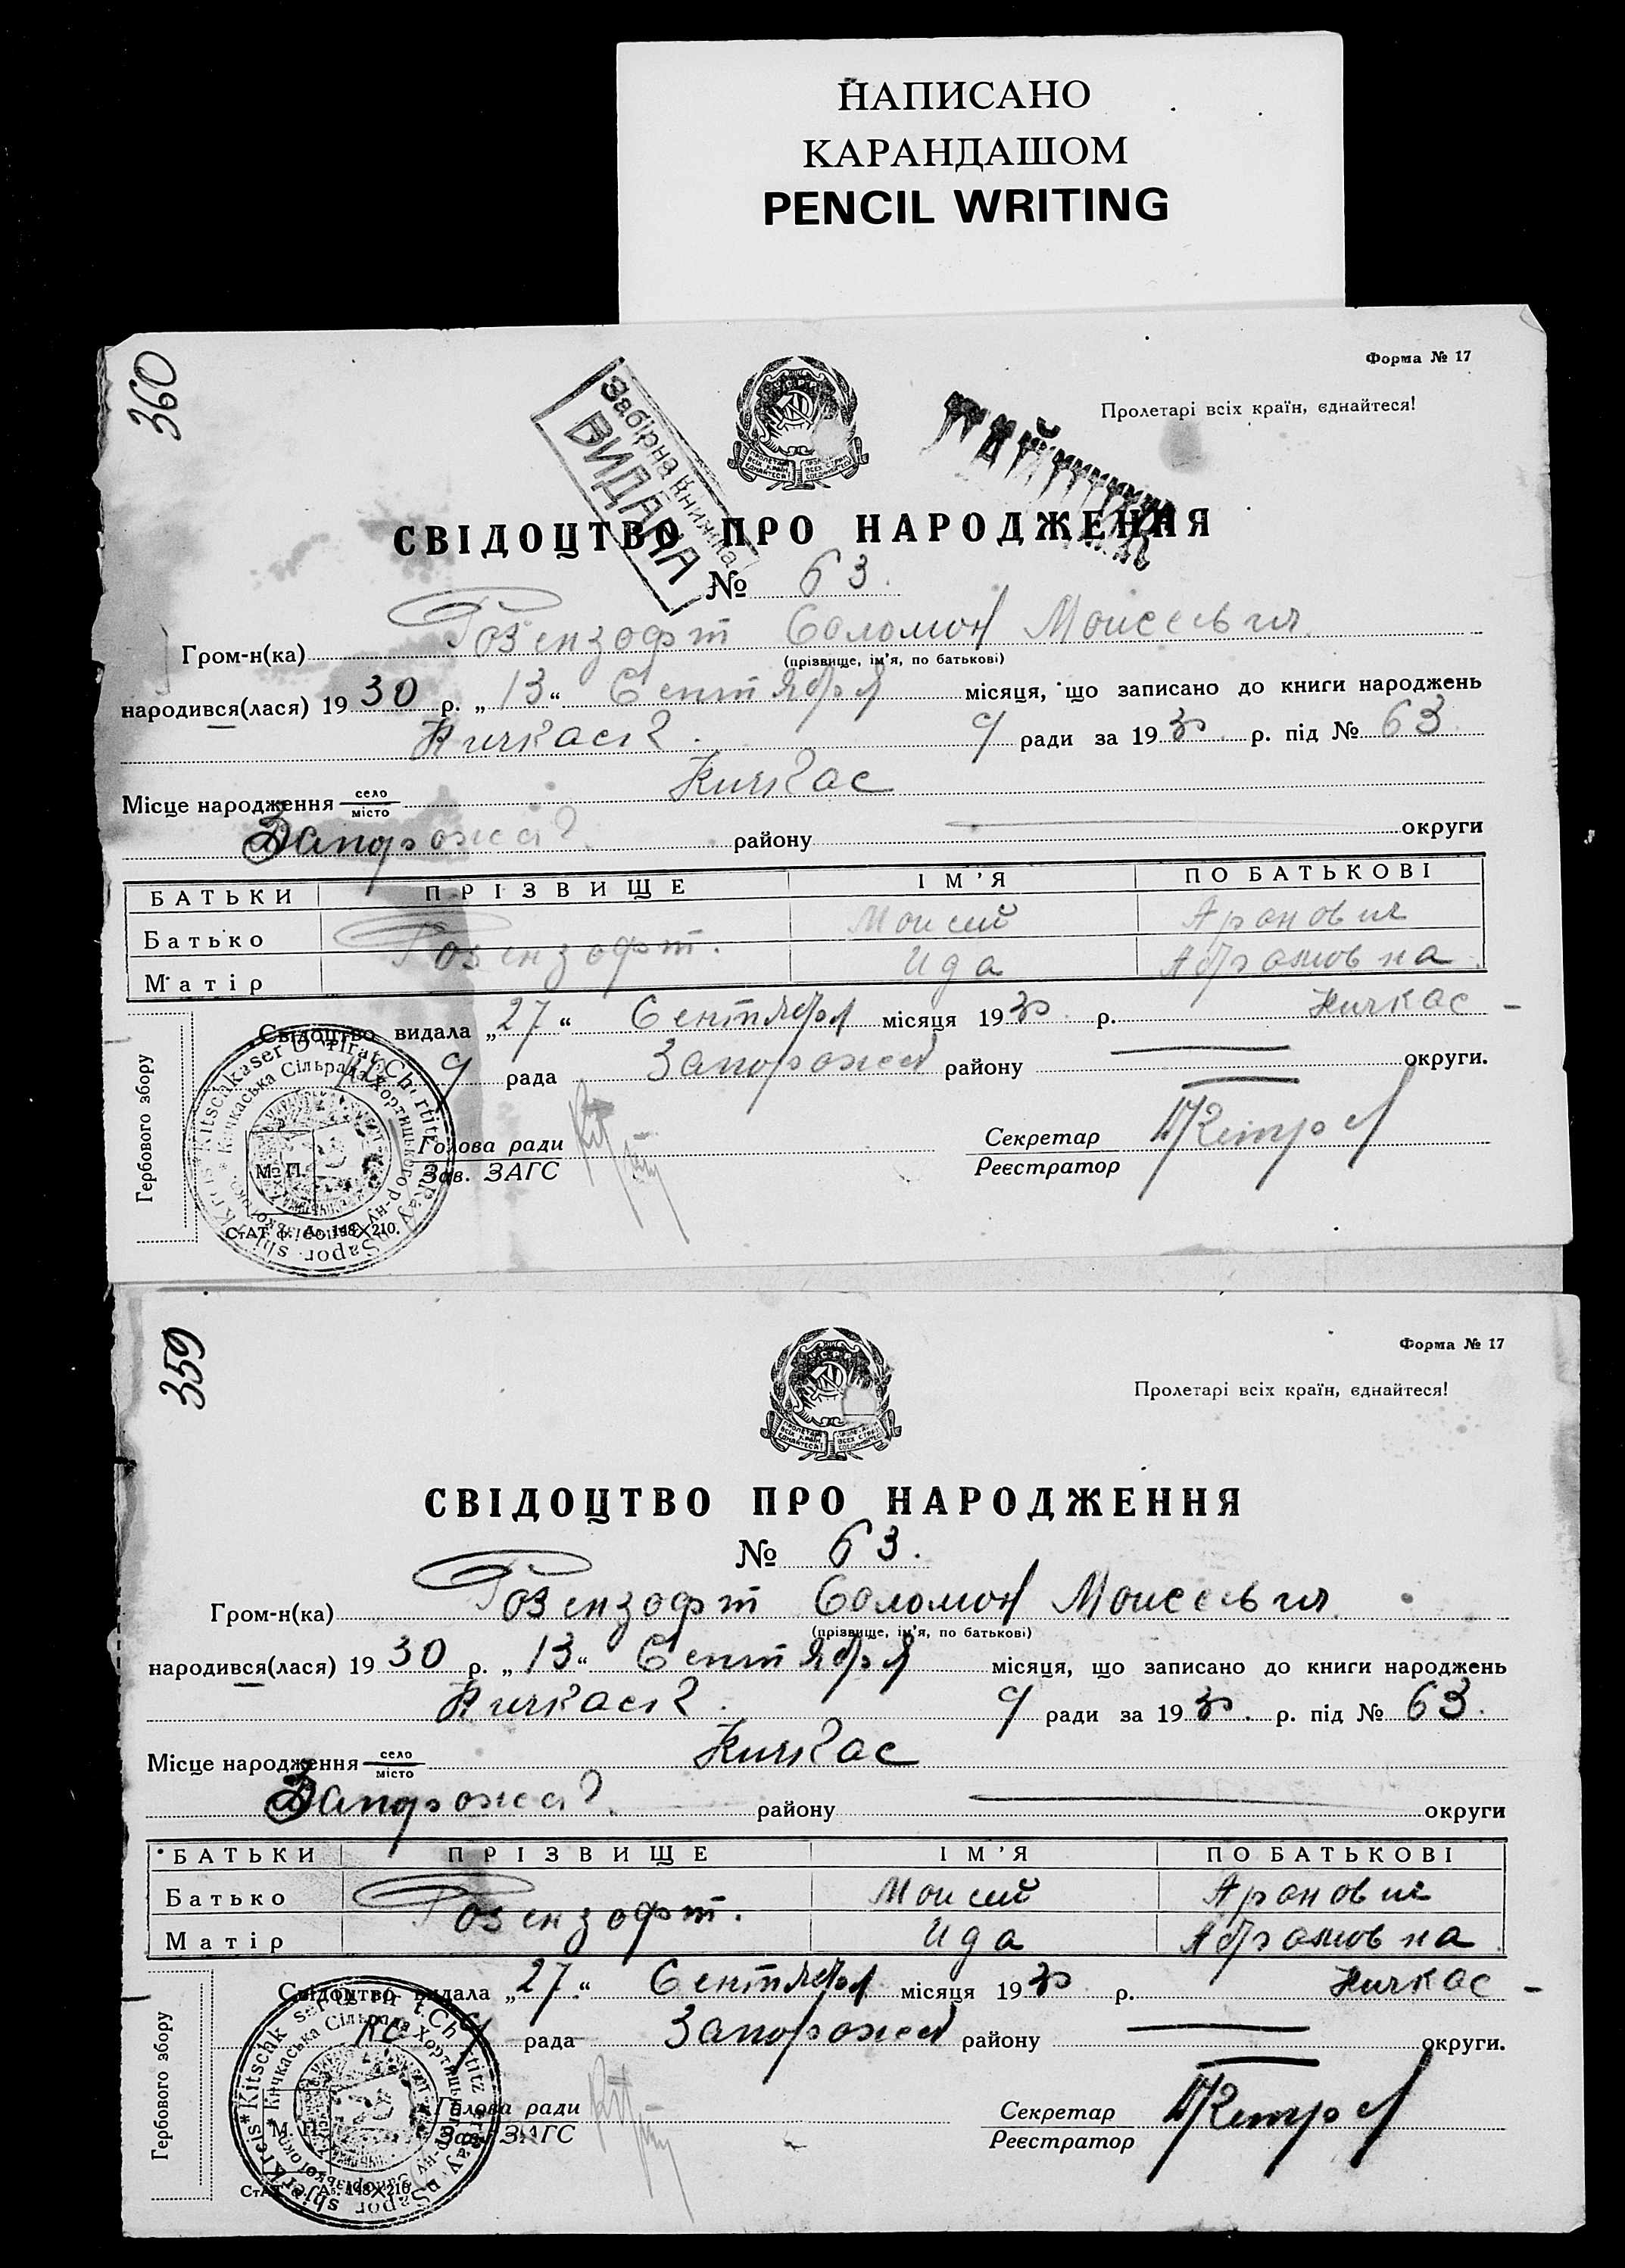 НАПИСАНО
КАРАНДАШОМ
PENCIL WRITING
360
Форма № 17
Пролетарі всіх країн, єднайтеся!
Забірна книжка
ВИДАНА
СВІДОЦТВО ПРО НАРОДЖЕННЯ
№ 63.
Гром-н(ка) Розензофт Соломон Моисеевич
(прізвище, ім'я, по батькові)
народився(лася) 1930 р. „13“ Сентября місяця, що записано до книги народжень
Кичкаск. ради за 1930 р. під № 63
Місце народження село місто Кичкас
Запорожск. району округи
БАТЬКИ ПРІЗВИЩЕ ІМ'Я ПО БАТЬКОВІ
Батько Розензофт. Моисей Аронович
Матір Ида Абрамовна
Свідоцтво видала „27“ Сентября місяця 1930 р. Кичкас-
рада Запорожск району округи.
Гербового збору
М. П.
Голова ради
Зав. ЗАГС
Секретар
Реєстратор
Кичкаська Сільрада Хортицького р-ну
359
Форма № 17
Пролетарі всіх країн, єднайтеся!
СВІДОЦТВО ПРО НАРОДЖЕННЯ
№ 63.
Гром-н(ка) Розензофт Соломон Моисеевич
(прізвище, ім'я, по батькові)
народився(лася) 1930 р. „13“ Сентября місяця, що записано до книги народжень
Кичкаск. ради за 1930. р. під № 63.
Місце народження село місто Кичкас
Запорожск. району округи
БАТЬКИ ПРІЗВИЩЕ ІМ'Я ПО БАТЬКОВІ
Батько Розензофт. Моисей Аронович
Матір Ида Абрамовна
Свідоцтво видала „27.“ Сентября місяця 1930 р. Кичкас-
рада Запорожск району округи.
Гербового збору
М. П.
Голова ради
Зав. ЗАГС
Секретар
Реєстратор
Кичкаська Сільрада Хортицького р-ну